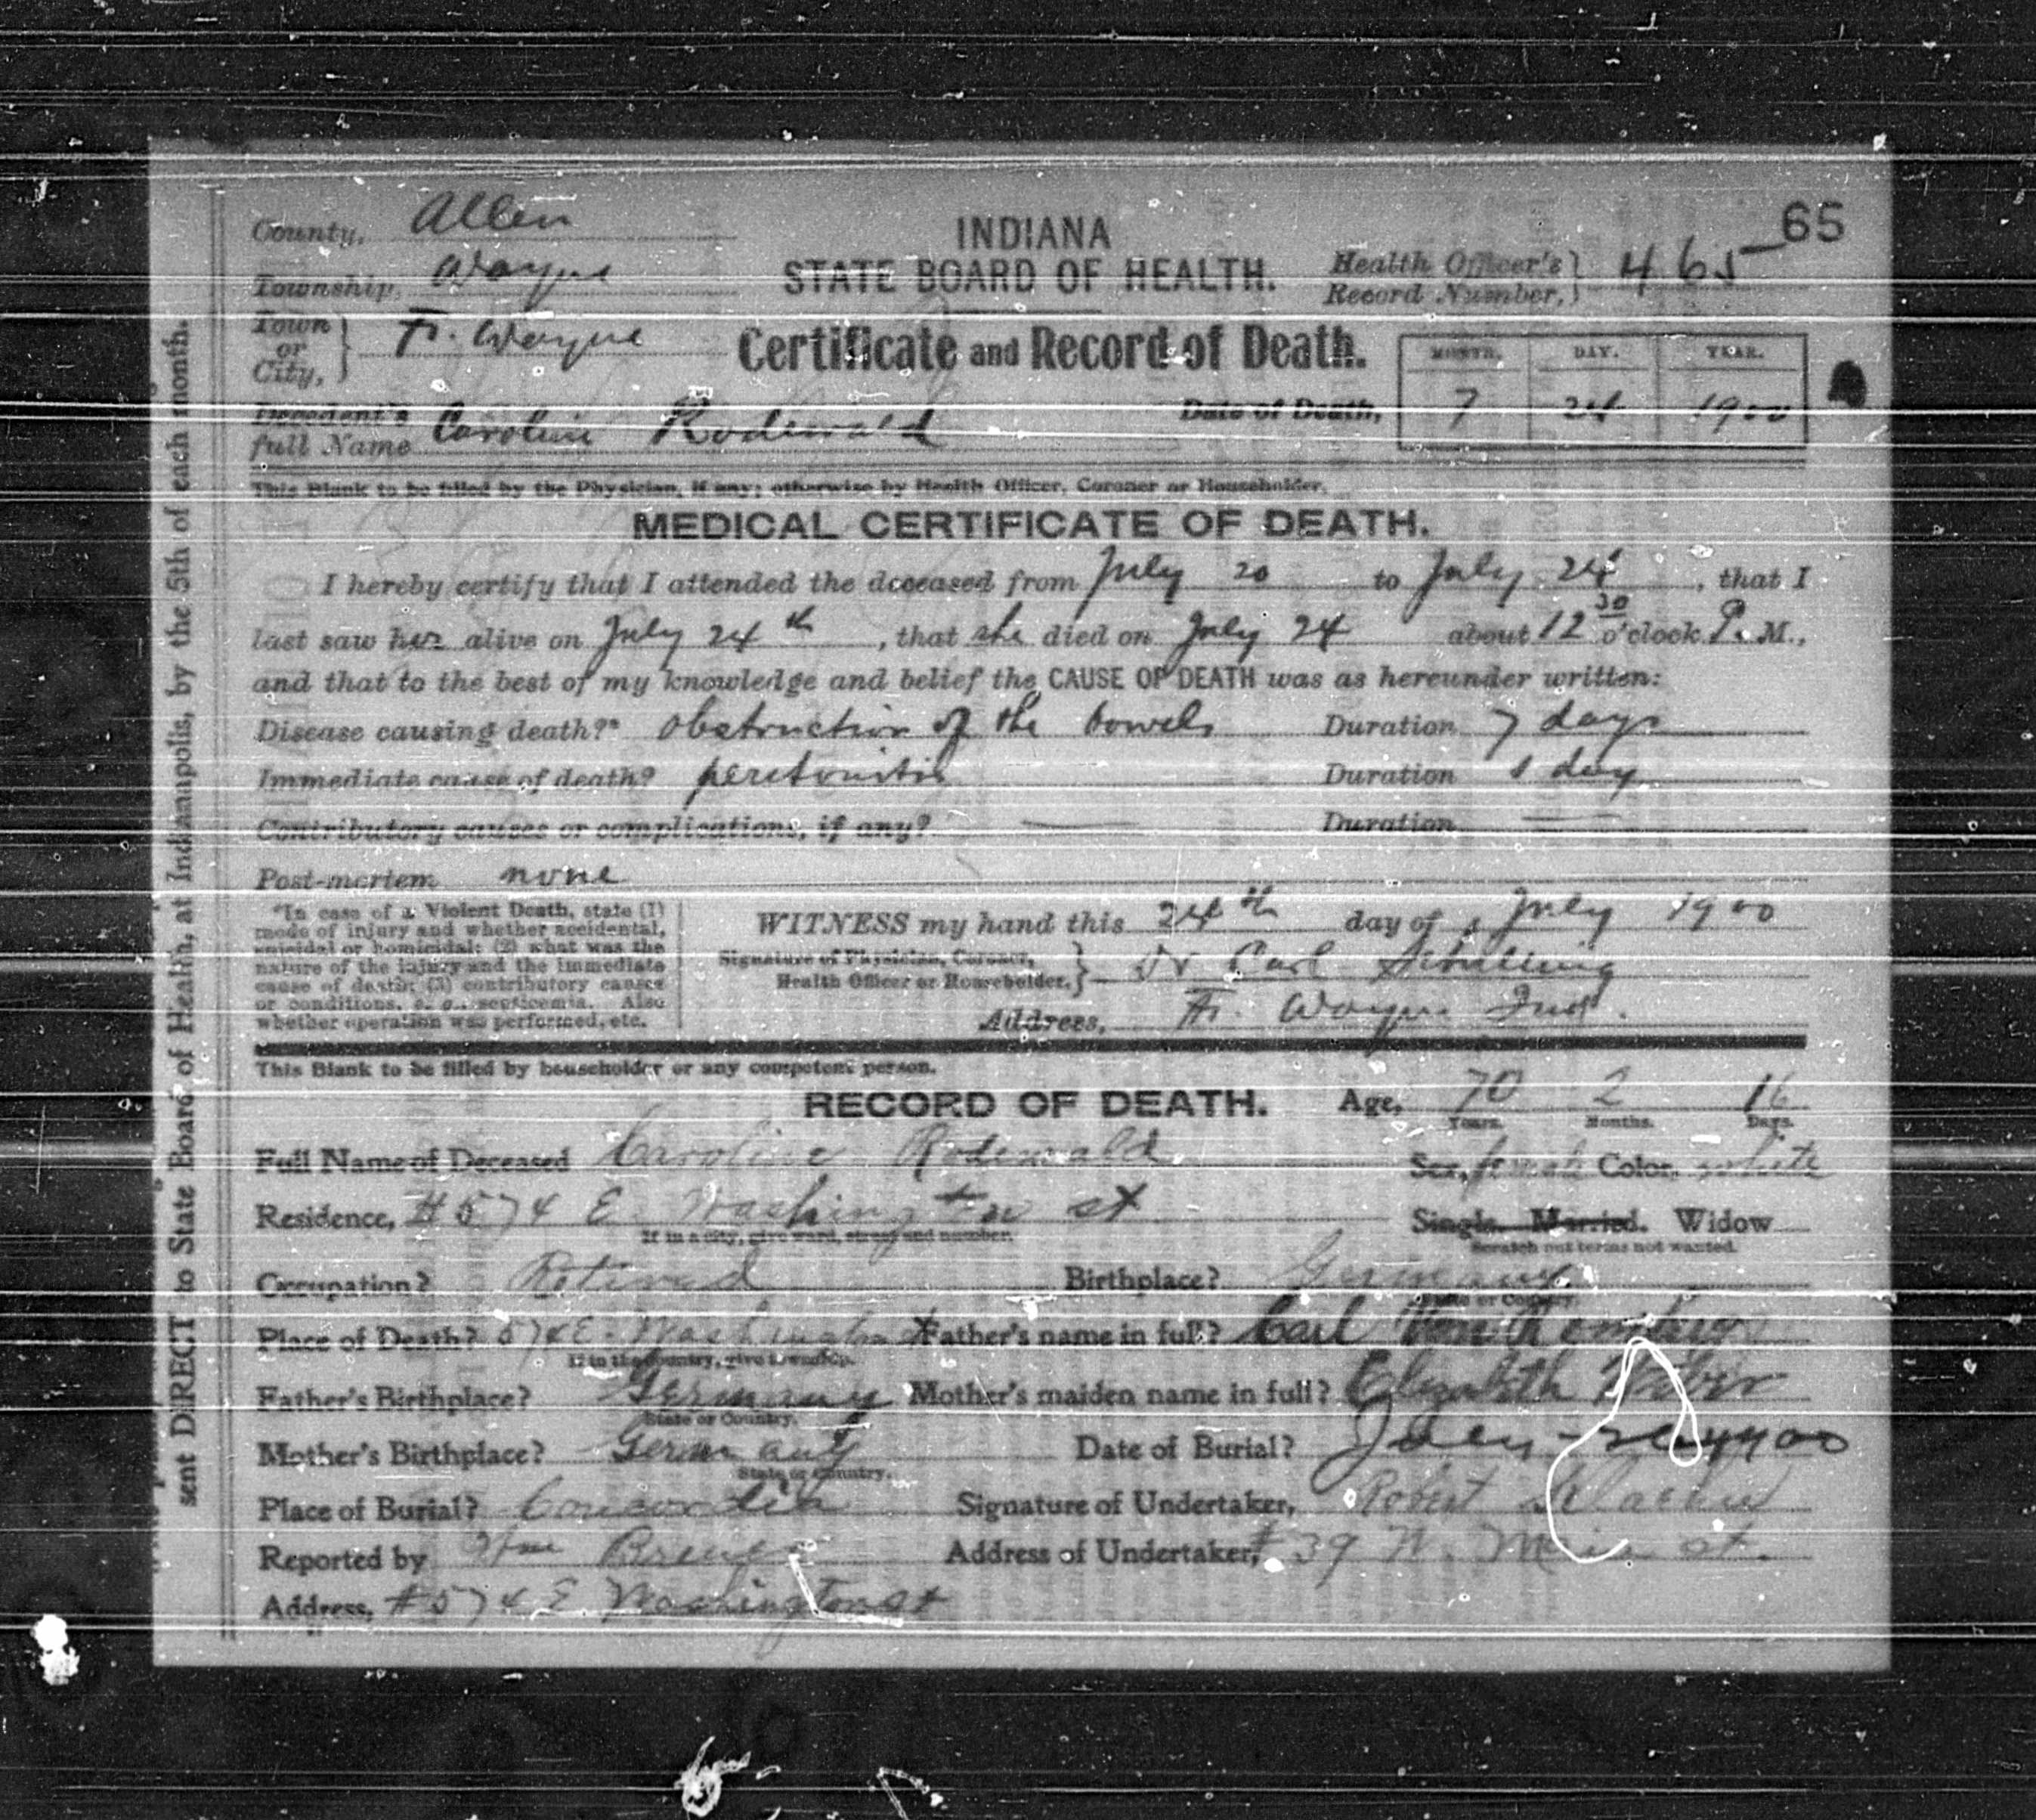 65
County, Allen
INDIANA
Township, Wayne
STATE BOARD OF HEALTH.
Health Officer's Record Number, 465
Town or City, Ft. Wayne
Certificate and Record of Death.
MONTH. DAY. YEAR.
Decedent's full Name Caroline Rodewald
Date of Death, 7 24 1900
This Blank to be filled by the Physician, if any; otherwise by Health Officer, Coroner or Householder.
MEDICAL CERTIFICATE OF DEATH.
I hereby certify that I attended the deceased from July 20 to July 24, that I
last saw her alive on July 24th, that she died on July 24 about 12 30 o'clock P. M.,
and that to the best of my knowledge and belief the CAUSE OF DEATH was as hereunder written:
Disease causing death?* obstruction of the bowels Duration 7 days
Immediate cause of death? peritonitis Duration 1 day
Contributory causes or complications, if any? — Duration —
Post-mortem none
*In case of a Violent Death, state (1)
mode of injury and whether accidental,
suicidal or homicidal; (2) what was the
nature of the injury and the immediate
cause of death; (3) contributory causes
or conditions, e. g., septicemia. Also
whether operation was performed, etc.
WITNESS my hand this 24th day of July 1900
Signature of Physician, Coroner,
Health Officer or Householder, Dr Carl Schilling
Address, Ft. Wayne Ind.
This Blank to be filled by householder or any competent person.
RECORD OF DEATH. Age, 70 2 16
Years. Months. Days.
Full Name of Deceased Caroline Rodewald Sex, female Color, white
Residence, #574 E. Washington st Single. Married. Widow
If in a city, give ward, street and number. Scratch out terms not wanted.
Occupation? Retired Birthplace? Germany
State or Country.
Place of Death? 574 E. Washington st Father's name in full? Carl Von
If in the country, give township.
Father's Birthplace? Germany Mother's maiden name in full? Elizabeth
State or Country.
Mother's Birthplace? Germany Date of Burial? July 1900
State or Country.
Place of Burial? Concordia Signature of Undertaker, Robert
Reported by Wm Address of Undertaker, #39 W. Main st.
Address, #574 E Washington st
sent DIRECT to State Board of Health, at Indianapolis, by the 5th of each month.